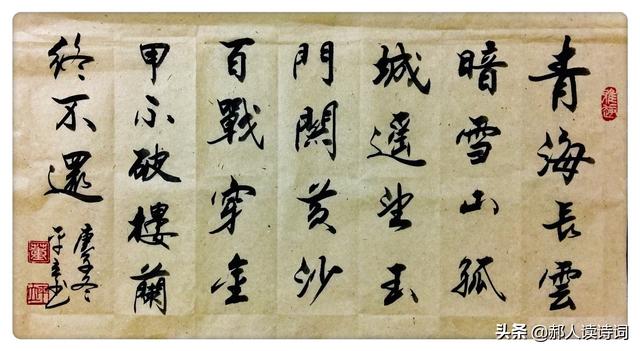 青海長雲
暗雪山孤
城遥望玉
門關黄沙
百戰穿金
甲不破樓蘭
終不還
庚子冬
头条 @郝人读诗词